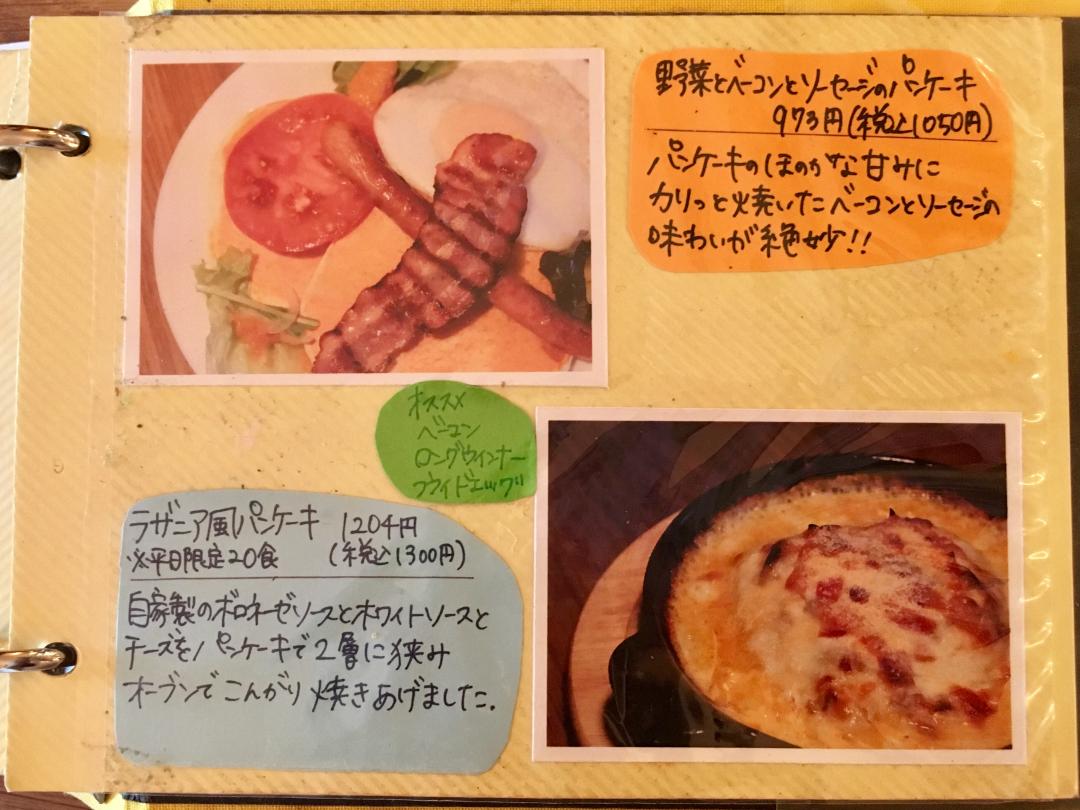 野菜とベーコンとソーセージのパンケーキ
973円(税込1050円)
パンケーキのほのかな甘みに
カリっと焼いたベーコンとソーセージの
味わいが絶妙!!
オススメ
ベーコン
ロングウィンナー
フライドエッグ
ラザニア風パンケーキ 1204円
※平日限定20食 (税込1300円)
自家製のボロネーゼソースとホワイトソースと
チーズをパンケーキで2層に狭み
オーブンでこんがり焼きあげました.